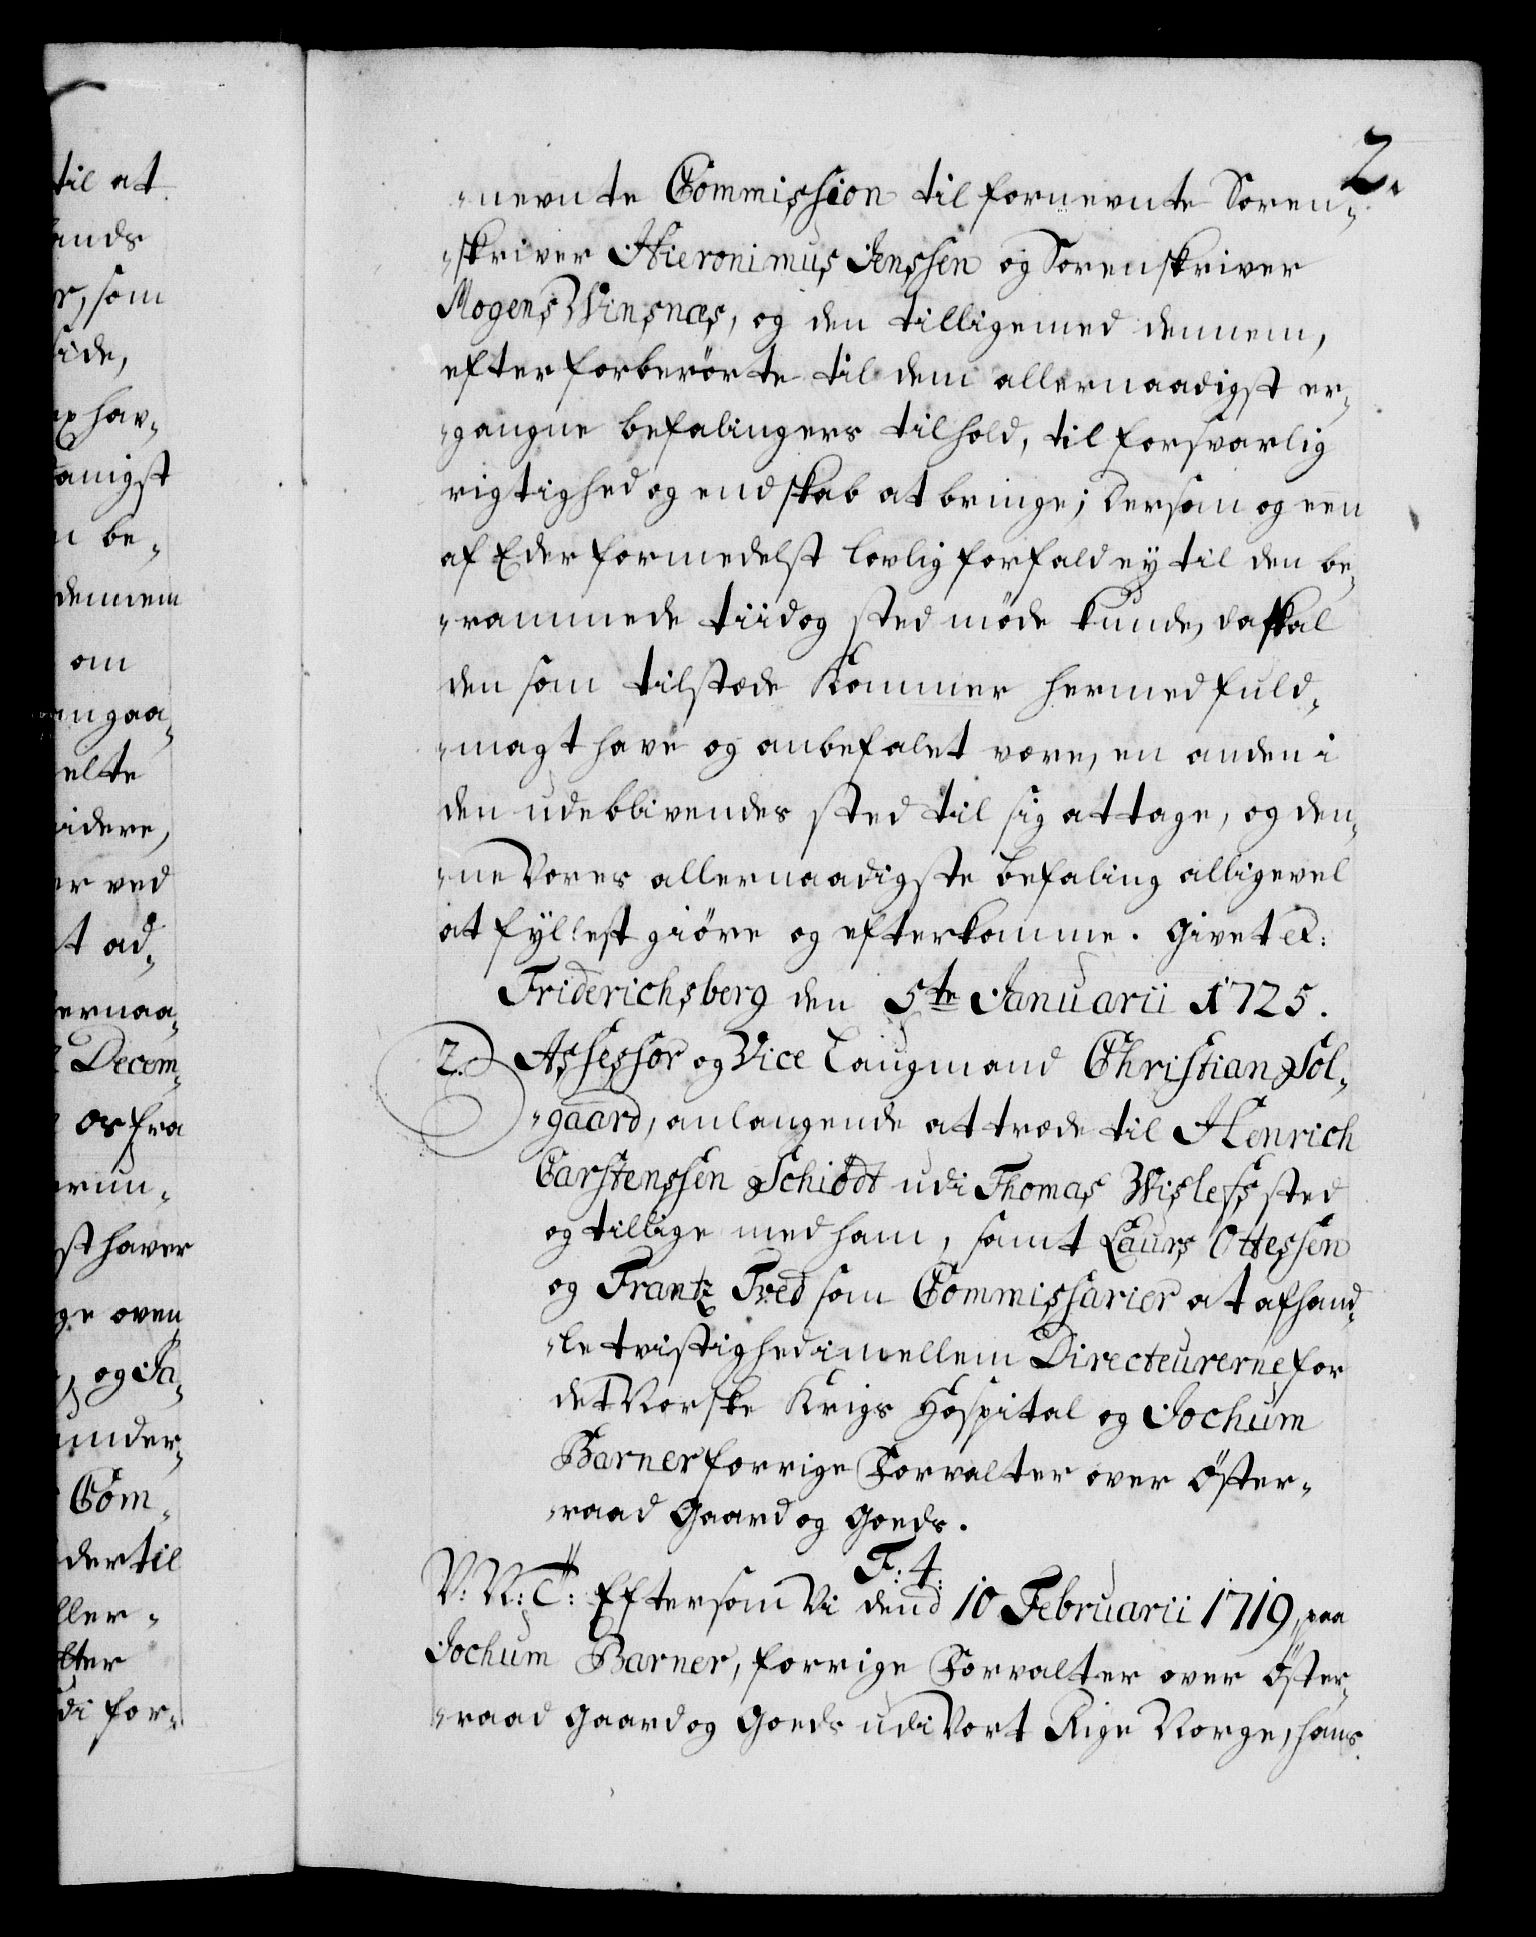 2.
til at
ands
r, som
side,
hav-
anigst
n be-
dennem
om
angaa-
elte
videre,
er ved
t ad-
ernaa-
Decem-
Os fra
erun-
st haver
ge oven
, og Ja-
under-
Com-
dertil
ller-
lter
di for-
-nevnte Commission til fornevnte Soren-
-skriver Hieronimus Jenssen og Sorenskriver
Mogens Winsnæs, og den tilligemed dennem,
efter forberörte til dem allernaadigst er-
-gangne befalingers tilhold, til forsvarlig
rigtighed og endskab at bringe; Dersom og een
af Eder formedelst lovlig forfald ey til den be-
-rammede tiid og sted möde kunde, da skal
den som tilstæde kommer hermed fuld-
-magt have og anbefalet være, en anden i
den udeblivendes sted til sig at tage, og den-
-ne Vores allernaadigste befaling alligevel
at fyllest giöre og efterkomme. Givet et:
Friderichsberg den 5te Januarii 1725.
2. Assessor og Vice Laugmand Christian Sol-
-gaard, anlangende at træde til Henrich
Carstenssen Schiödt udi Thomas Wislefs sted
og tillige med ham, samt Laurs Ottessen
og Frantz Tred som Commissarier at afhand-
-le tvistighed imellem Directeurerne for
det Norske Krigs Hospital og Jochum
Barner forrige Forvalter over Öster-
-raad Gaard og Goeds.
F: 4:
V: N: T: Eftersom Vi dend 10 Februarii 1719, paa
Jochum Barner, forrige Forvalter over Öster-
-raad Gaard og Goeds udi Vort Rige Norge, hans